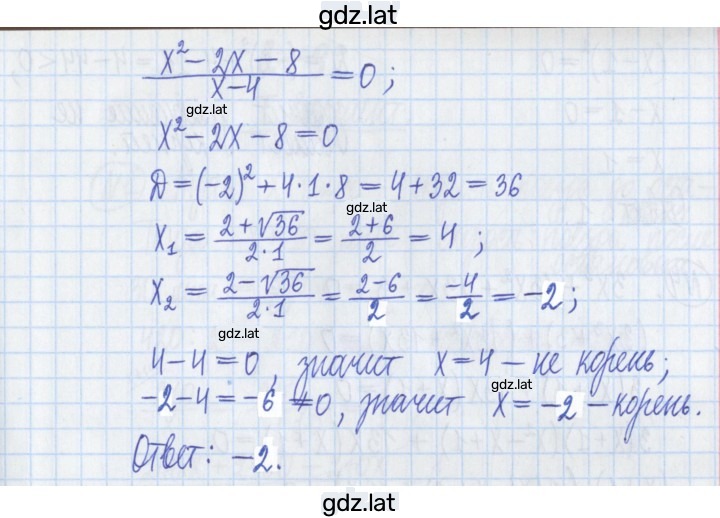 gdz.lat
(x² − 2x − 8)/(x − 4) = 0;
gdz.lat
x² − 2x − 8 = 0
Д = (−2)² + 4·1·8 = 4 + 32 = 36
gdz.lat
x₁ = (2 + √36)/(2·1) = (2 + 6)/2 = 4;
x₂ = (2 − √36)/(2·1) = (2 − 6)/2 = −4/2 = −2;
gdz.lat
4 − 4 = 0, значит x = 4 – не корень;
gdz.lat
−2 − 4 = −6 ≠ 0, значит x = −2 – корень.
Ответ: −2.
gdz.lat
gdz.lat